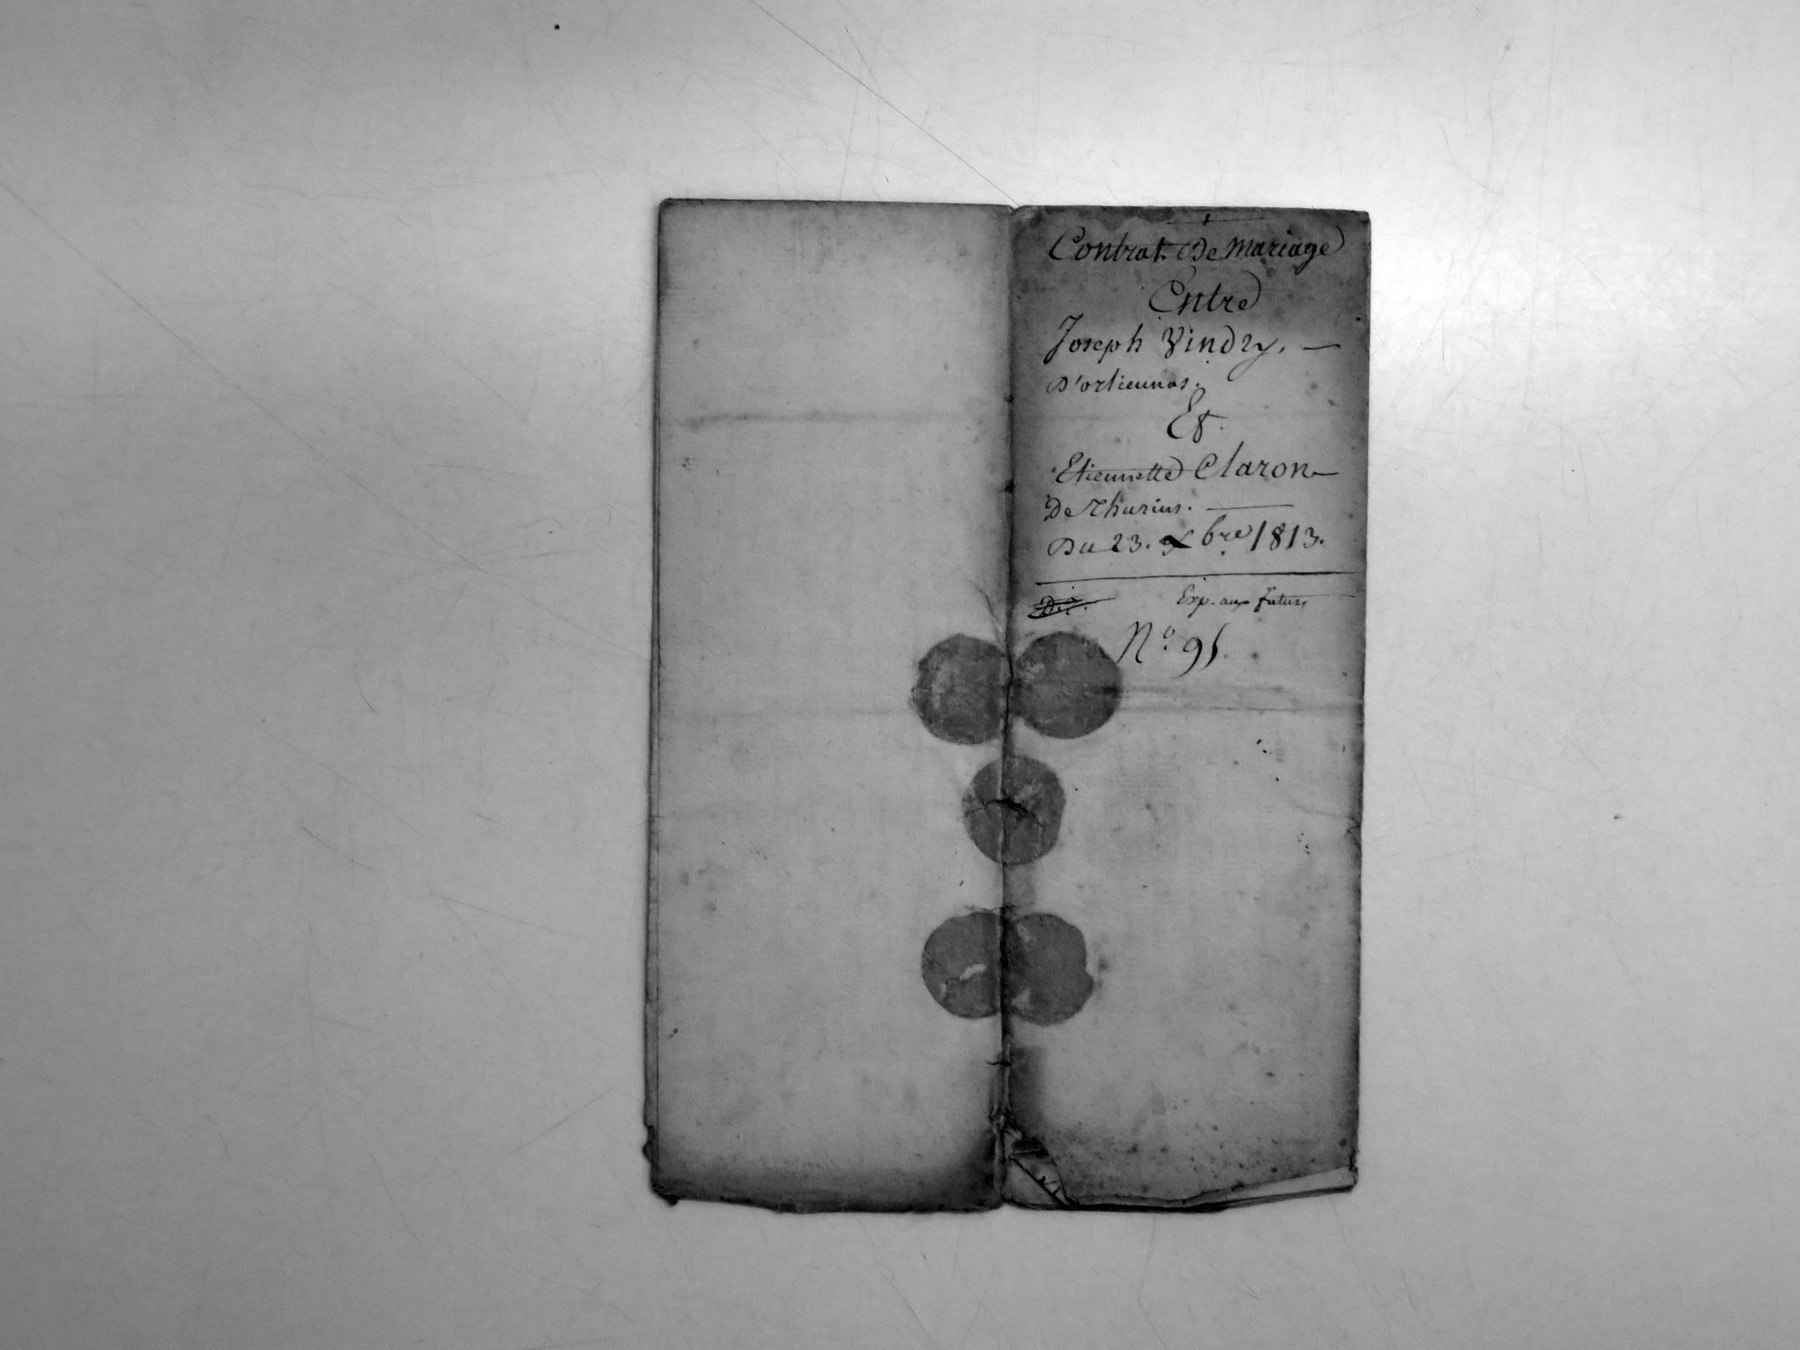 Contrat De mariage
Entre
Joseph Vindry. —
D'ortiennas.
Et
Etiennette Claron —
De Thurins. —
Du 23. Xbre 1813.
Exp. aux futurs
N.º 95.